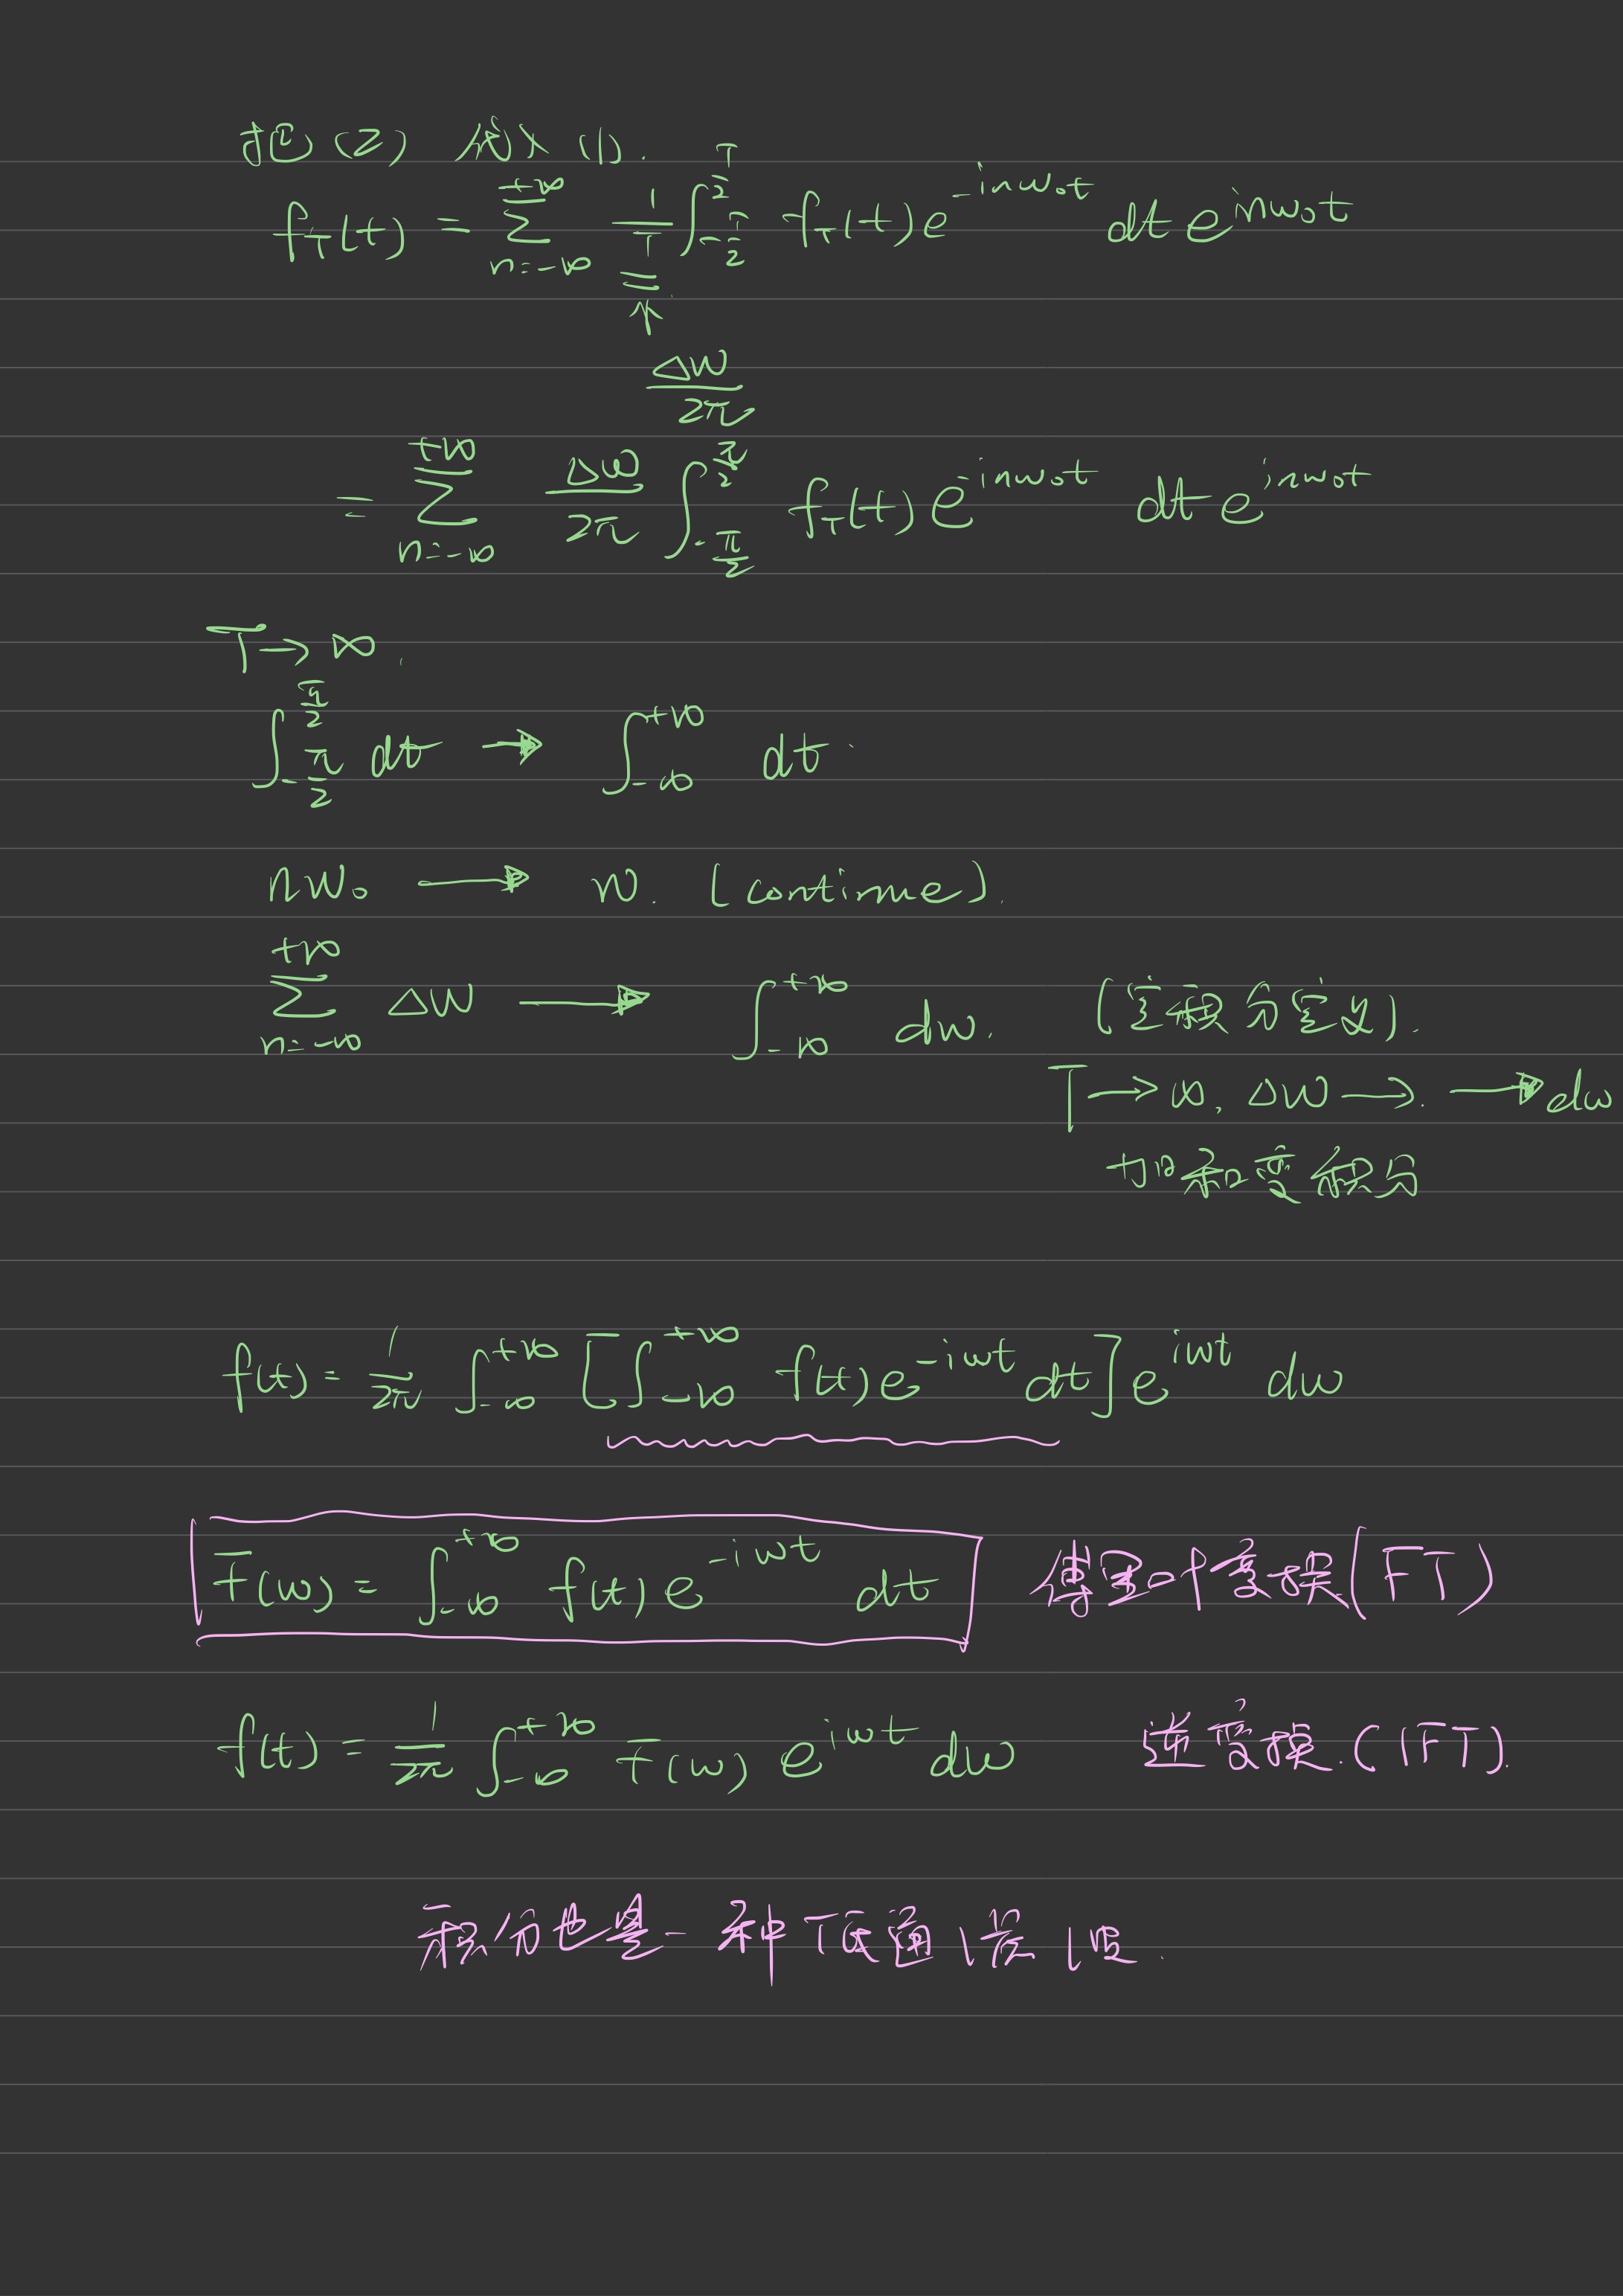 把(2)代入(1).
f_T(t) = \sum_{n=-\infty}^{+\infty} \frac{1}{T} \int_{-\frac{T}{2}}^{\frac{T}{2}} f_T(t) e^{-inω_0t} dt e^{inω_0t}
↑
\frac{Δω}{2π}
= \sum_{n=-\infty}^{+\infty} \frac{Δω}{2π} \int_{-\frac{π}{2}}^{\frac{π}{2}} f_T(t) e^{-inω_0t} dt e^{inω_0t}
T → ∞.
\int_{-\frac{π}{2}}^{\frac{π}{2}} dt → \int_{-∞}^{+∞} dt.
nω_0 → ω. (continue).
\sum_{n=-∞}^{+∞} Δω → \int_{-∞}^{+∞} dω. (定积分定义).
T → ∞. Δω → . → dω
加和变积分
f(t) = \frac{1}{2π} \int_{-∞}^{+∞} [\int_{-∞}^{+∞} f(t) e^{-iωt} dt] e^{iωt} dω
F(ω) = \int_{-∞}^{+∞} f(t) e^{-iωt} dt 傅里叶变换(FT)
f(t) = \frac{1}{2π} \int_{-∞}^{+∞} F(ω) e^{iωt} dω 逆变换.(IFT).
积分也是一种